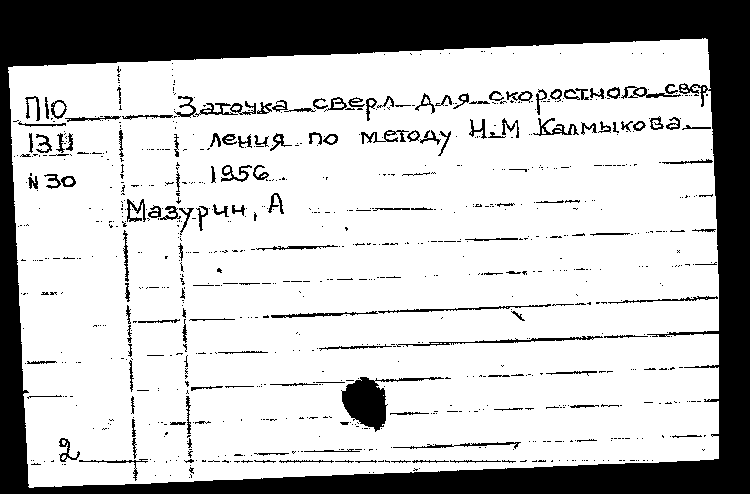 П10 Заточка сверл для скоростного свер-
13Д ления по методу Н.М Калмыкова.
N 30 1956
Мазурин, А
2